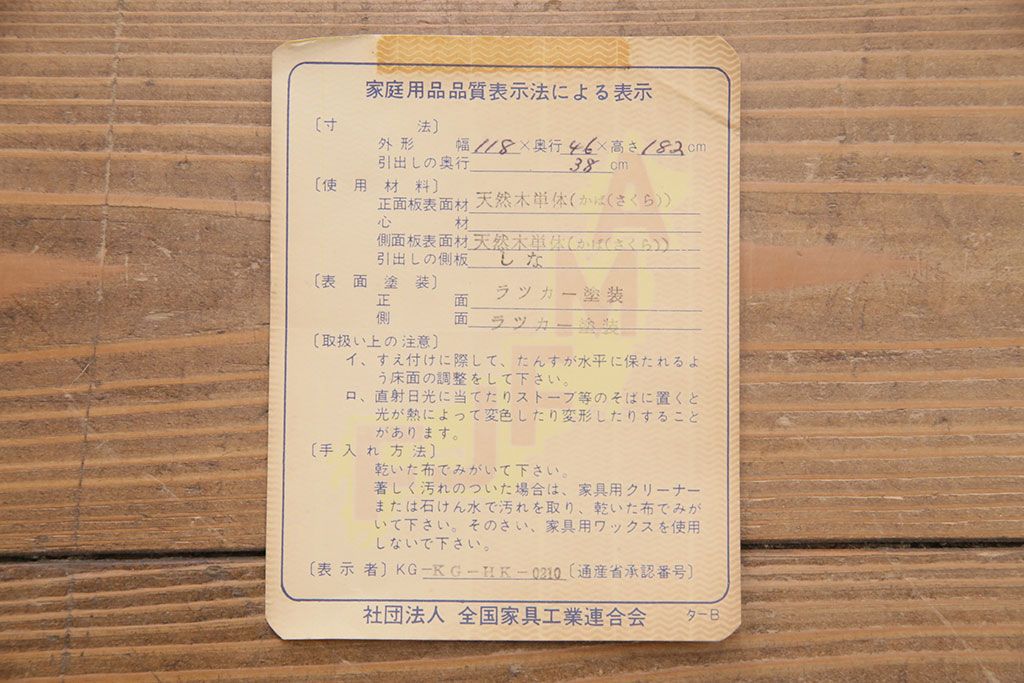 家庭用品品質表示法による表示
〔寸法〕
外形 幅118×奥行46×高さ182cm
引出しの奥行 38 cm
〔使用材料〕
正面板表面材 天然木単体(かば(さくら))
心材
側面板表面材 天然木単体(かば(さくら))
引出しの側板 しな
〔表面塗装〕
正面 ラツカー塗装
側面 ラツカー塗装
〔取扱い上の注意〕
イ、すえ付けに際して、たんすが水平に保たれるよ
う床面の調整をして下さい。
ロ、直射日光に当てたりストーブ等のそばに置くと
光が熱によって変色したり変形したりすること
があります。
〔手入れ方法〕
乾いた布でみがいて下さい。
著しく汚れのついた場合は、家具用クリーナー
または石けん水で汚れを取り、乾いた布でみが
いて下さい。そのさい、家具用ワックスを使用
しないで下さい。
〔表示者〕KG-KG-HK-0210〔通産省承認番号〕
社団法人 全国家具工業連合会 ターB